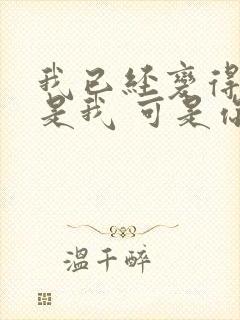 我已经变得
是我 可是你
温千醉